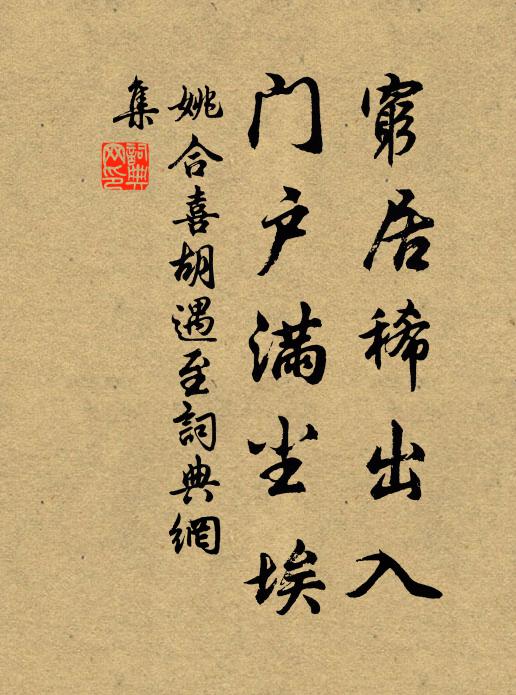 窮居稀出入
门户满尘埃
姚合喜胡遇至詞典網
集
詞典网印